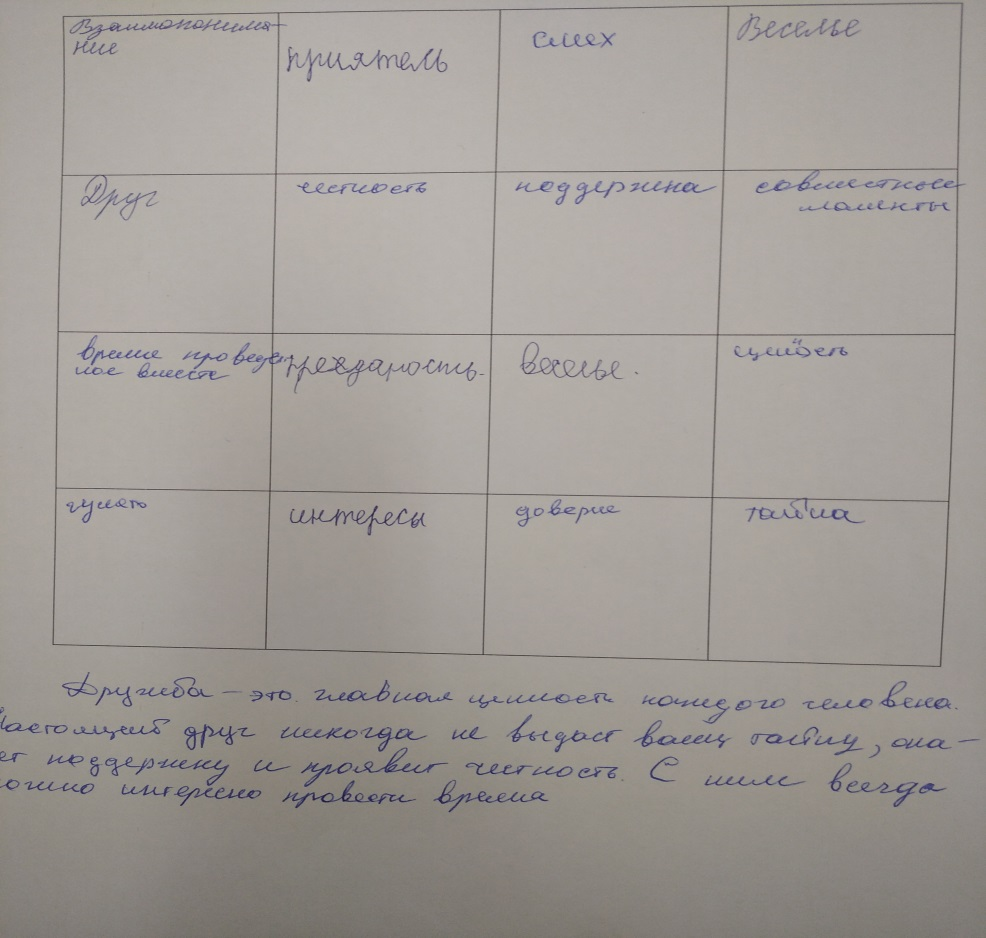 Взаимопонима-
ние
приятель
смех
Веселье
Друг
честность
поддержка
совместные
моменты
время проведен
ное вместе
преданость.
веселье.
ценность
гулять
интересы
доверие
тайна
Дружба – это главная ценность каждого человека.
Настоящий друг никогда не выдаст вашу тайну, ока-
ет поддержку и проявит честность. С ним всегда
можно интересно провести время